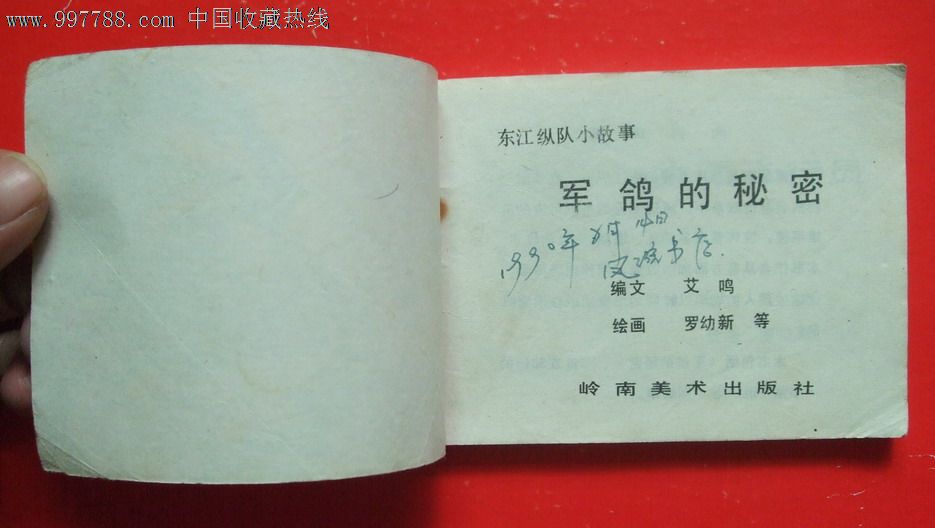 www.997788.com 中国收藏热线
东江纵队小故事
军鸽的秘密
1990年 月14日
书店.
编文 艾鸣
绘画 罗幼新 等
岭南美术出版社